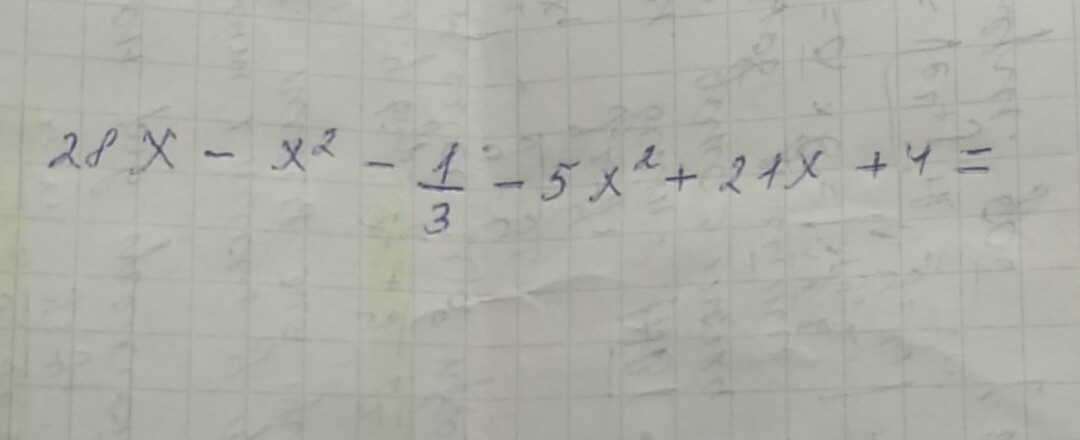 28x - x² - 1/3 - 5x² + 21x + 4 =